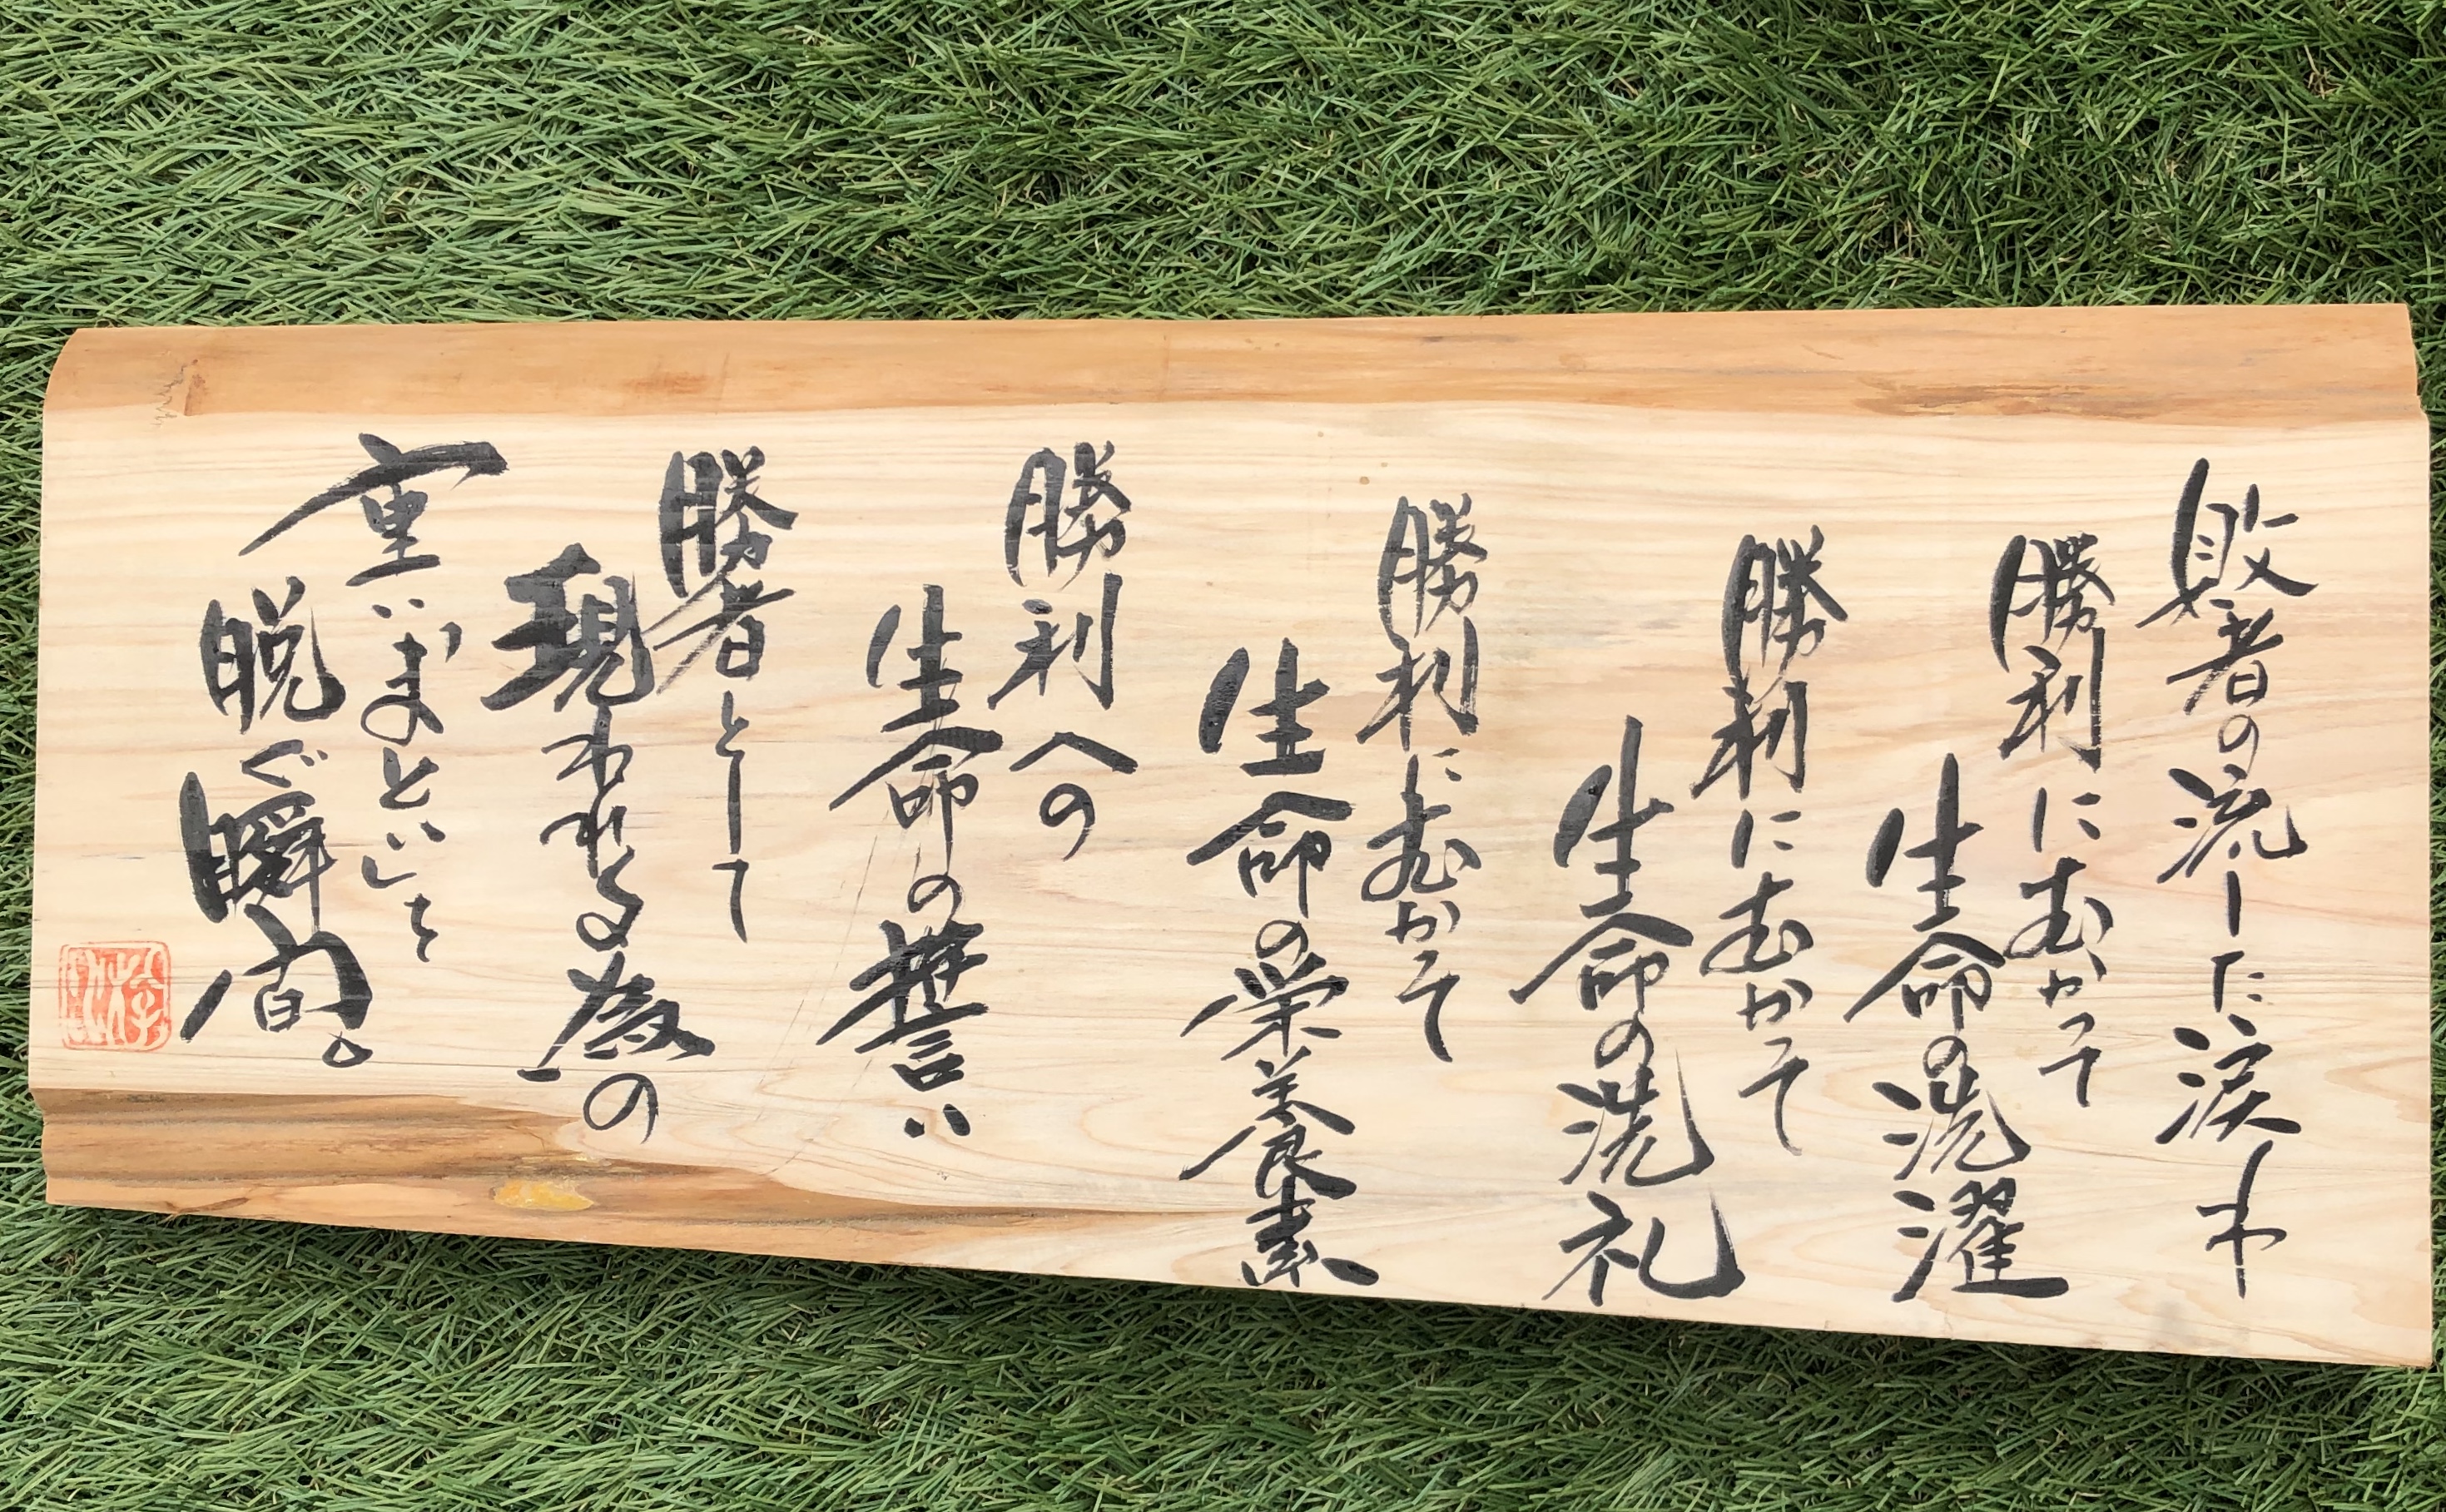 敗者の流した涙わ
勝利にむかって
生命の洗濯
勝利にむかって
生命の洗礼
勝利にむかって
生命の栄養素
勝利への
生命の誓い
勝者として
現われる為の
重い「まとい」を
脱ぐ瞬間。